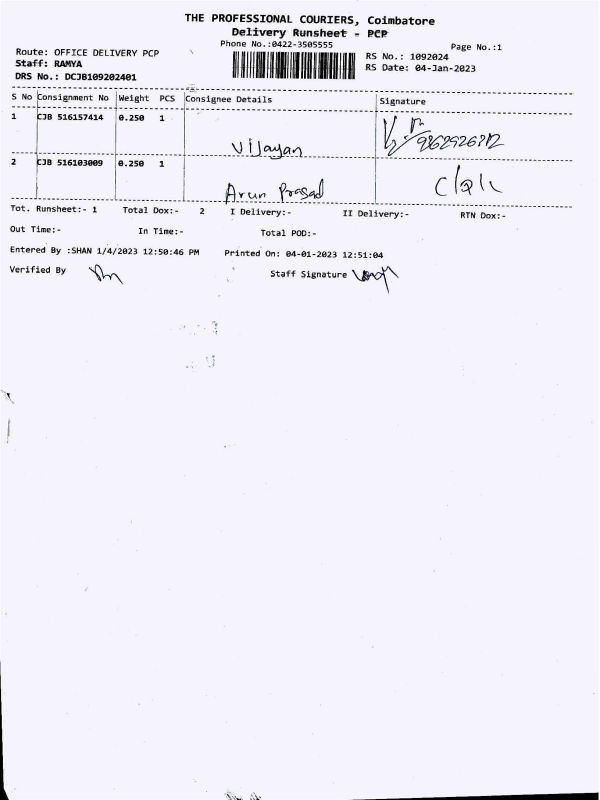 THE PROFESSIONAL COURIERS, Coimbatore
Delivery Runsheet - PCP
Phone No.:0422-3505555
Page No.:1
Route: OFFICE DELIVERY PCP
RS No.: 1092024
Staff: RAMYA
RS Date: 04-Jan-2023
DRS No.: DCJB109202401
S No Consignment No Weight PCS Consignee Details Signature
1 CJB 516157414 0.250 1
Vijayan
2 CJB 516103009 0.250 1
Arun Prasad
Tot. Runsheet:- 1 Total Dox:- 2 I Delivery:- II Delivery:- RTN Dox:-
Out Time:- In Time:- Total POD:-
Entered By :SHAN 1/4/2023 12:50:46 PM Printed On: 04-01-2023 12:51:04
Verified By Staff Signature